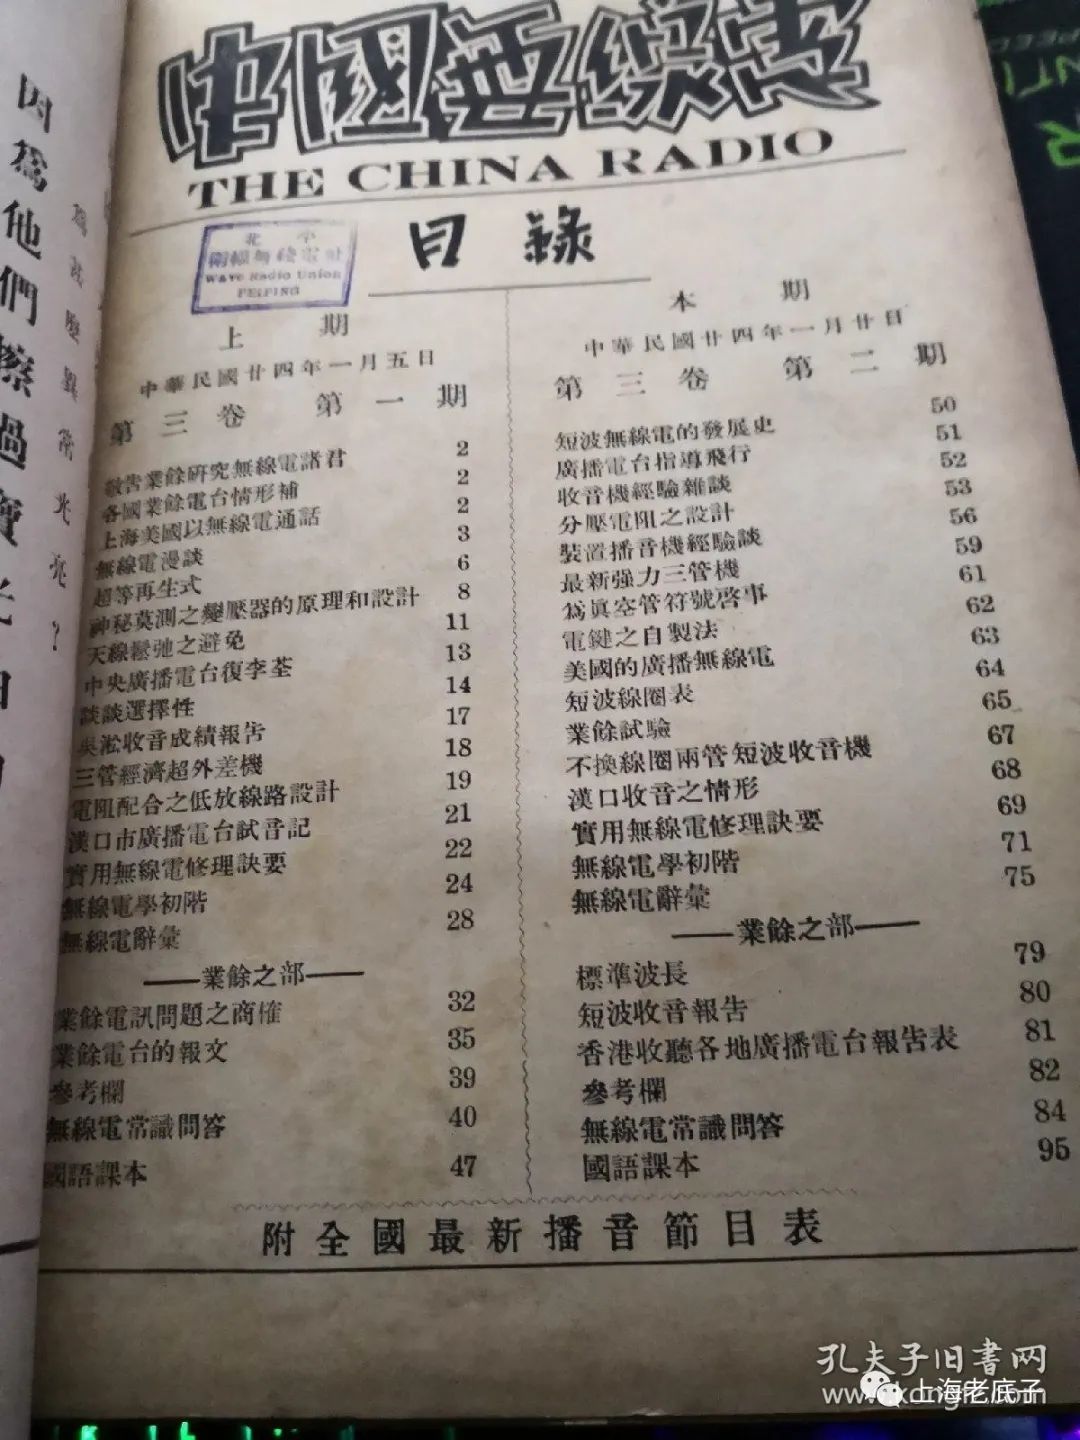 中國無線電
THE CHINA RADIO
目錄
北平
WAVE Radio Union
PEIPING
上期
中華民國廿四年一月五日
第三卷 第一期
敬告業餘研究無線電諸君 2
各國業餘電台情形補 2
上海美國以無線電通話 2
無線電漫談 3
超等再生式 6
神秘莫測之變壓器的原理和設計 8
天線鬆弛之避免 11
中央廣播電台復李荃 13
談談選擇性 14
吳淞收音成績報告 17
三管經濟超外差機 18
電阻配合之低放線路設計 19
漢口市廣播電台試音記 21
實用無線電修理訣要 22
無線電學初階 24
無線電辭彙 28
——業餘之部——
業餘電訊問題之商榷 32
業餘電台的報文 35
參考欄 39
無線電常識問答 40
國語課本 47
本期
中華民國廿四年一月廿日
第三卷 第二期
短波無線電的發展史 50
廣播電台指導飛行 51
收音機經驗雜談 52
分壓電阻之設計 53
裝置播音機經驗談 56
最新强力三管機 59
為眞空管符號啓事 61
電鍵之自製法 62
美國的廣播無線電 63
短波線圈表 64
業餘試驗 65
不換線圈兩管短波收音機 67
漢口收音之情形 68
實用無線電修理訣要 69
無線電學初階 71
無線電辭彙 75
——業餘之部——
標準波長 79
短波收音報告 80
香港收聽各地廣播電台報告表 81
參考欄 82
無線電常識問答 84
國語課本 95
附全國最新播音節目表
因為他們擦過寶
孔夫子旧書网
上海老底子